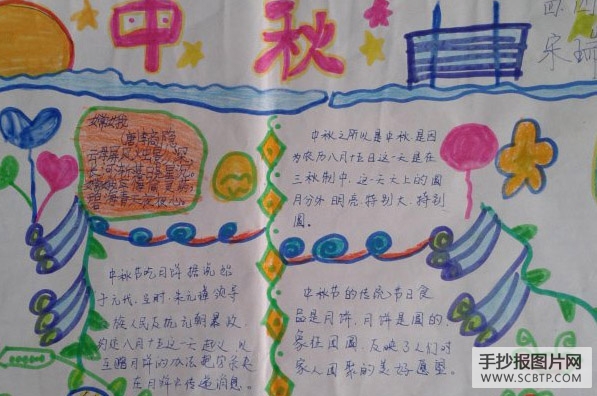 中秋
宋
嫦娥
(唐)李商隐
中秋之所以是中秋,是因
为农历八月十五日这一天是在
三秋制中,这一天天上的圆
月分外明亮特别大.特别
圆。
中秋节吃月饼据说始
于元代,当时,朱元璋领导
族人民反抗元朝暴政,
约定八月十五这一天起义,以
互赠月饼的办法把字条夹
在月饼中传递消息。
中秋节的传统节日食
品是月饼,月饼是圆的,
象征团圆,反映了人们对
家人团聚的美好愿望。
手抄报图片网
WWW.SCBTP.COM